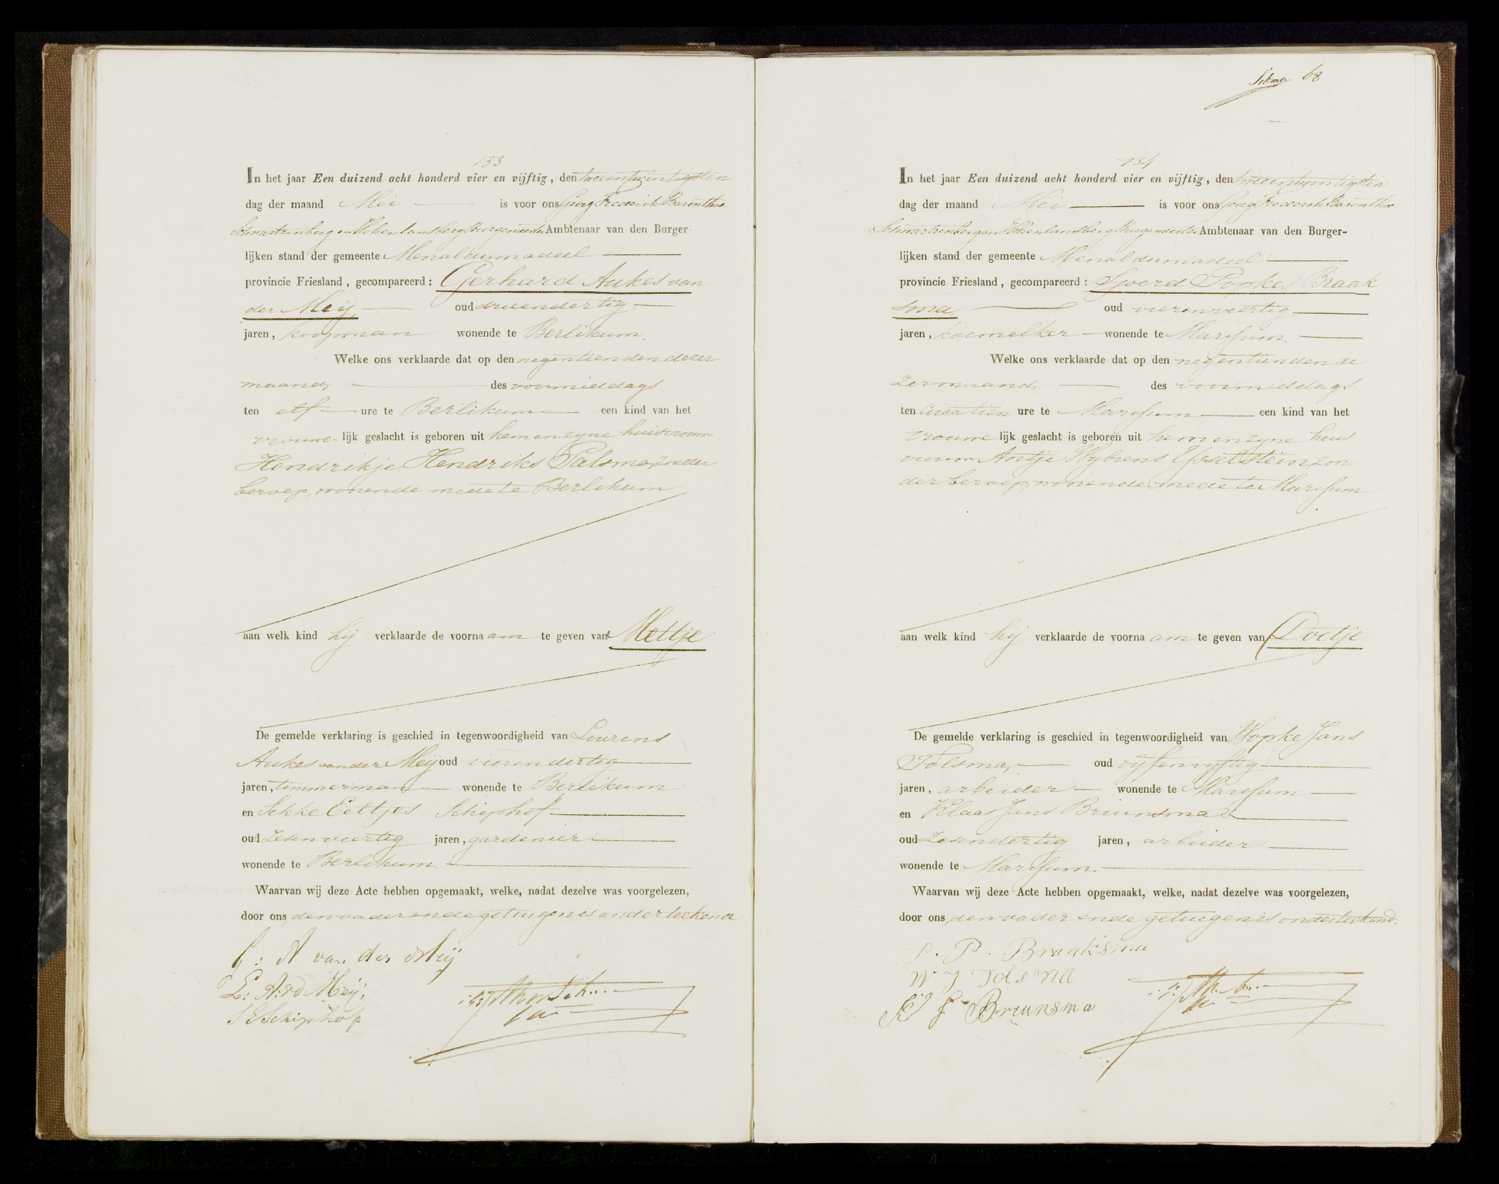 133
In het jaar Een duizend acht honderd vier en vijftig, den tweeentwintigsten
dag der maand Mei is voor ons Georg Frederik Barenthon
Ambtenaar van den Burger
lijken stand der gemeente Menaldumadeel
provincie Friesland, gecompareerd: Gerhard Aukes van
der Meij oud drieendertig
jaren, koopman wonende te Berlikum
Welke ons verklaarde dat op den negentienden dezer
maand, des voormiddags
ten elf ure te Berlikum een kind van het
vrouwelijk geslacht is geboren uit hem en zyne huisvrouw
Hendrikje Hendriks Palsma, zonder
beroep, wonende mede te Berlikum
aan welk kind hij verklaarde de voornaam te geven van Meltje
De gemelde verklaring is geschied in tegenwoordigheid van Lourens
Aukes van der Meij oud
jaren, timmerman wonende te Berlikum
en Sekke Eeltjes Schiphof
oud zesenveertig jaren, gardenier
wonende te Berlikum
Waarvan wij deze Acte hebben opgemaakt, welke, nadat dezelve was voorgelezen,
door ons, den vader en de getuigen is onderteekend
G: A van der Meij
L: A: v d Meij:
S E Schiphof
68
134
In het jaar Een duizend acht honderd vier en vijftig, den tweeentwintigsten
dag der maand Mei is voor ons Georg Frederik Barenthon
Ambtenaar van den Burger-
lijken stand der gemeente Menaldumadeel
provincie Friesland, gecompareerd: Sjoerd Popkes Braak
sma oud vierenveertig
jaren, koemelker wonende te Marssum
Welke ons verklaarde dat op den negentienden de
zer maand, des voormiddags
ten ure te Marssum een kind van het
vrouwelijk geslacht is geboren uit hem en zyne huis
vrouw Antje Wybrens IJsselstein, zon
der beroep, wonende mede te Marssum
aan welk kind hij verklaarde de voornaam te geven van Doetje
De gemelde verklaring is geschied in tegenwoordigheid van Wopke Jans
Tolsma, oud vyfenvyftig
jaren, arbeider wonende te Marssum
en Klaas Jans Bruinsma
oud zesendertig jaren, arbeider
wonende te Marssum
Waarvan wij deze Acte hebben opgemaakt, welke, nadat dezelve was voorgelezen,
door ons, den vader en de getuigen is onderteekend.
S. P. Braaksma
W J Tolsma
K J Bruinsma